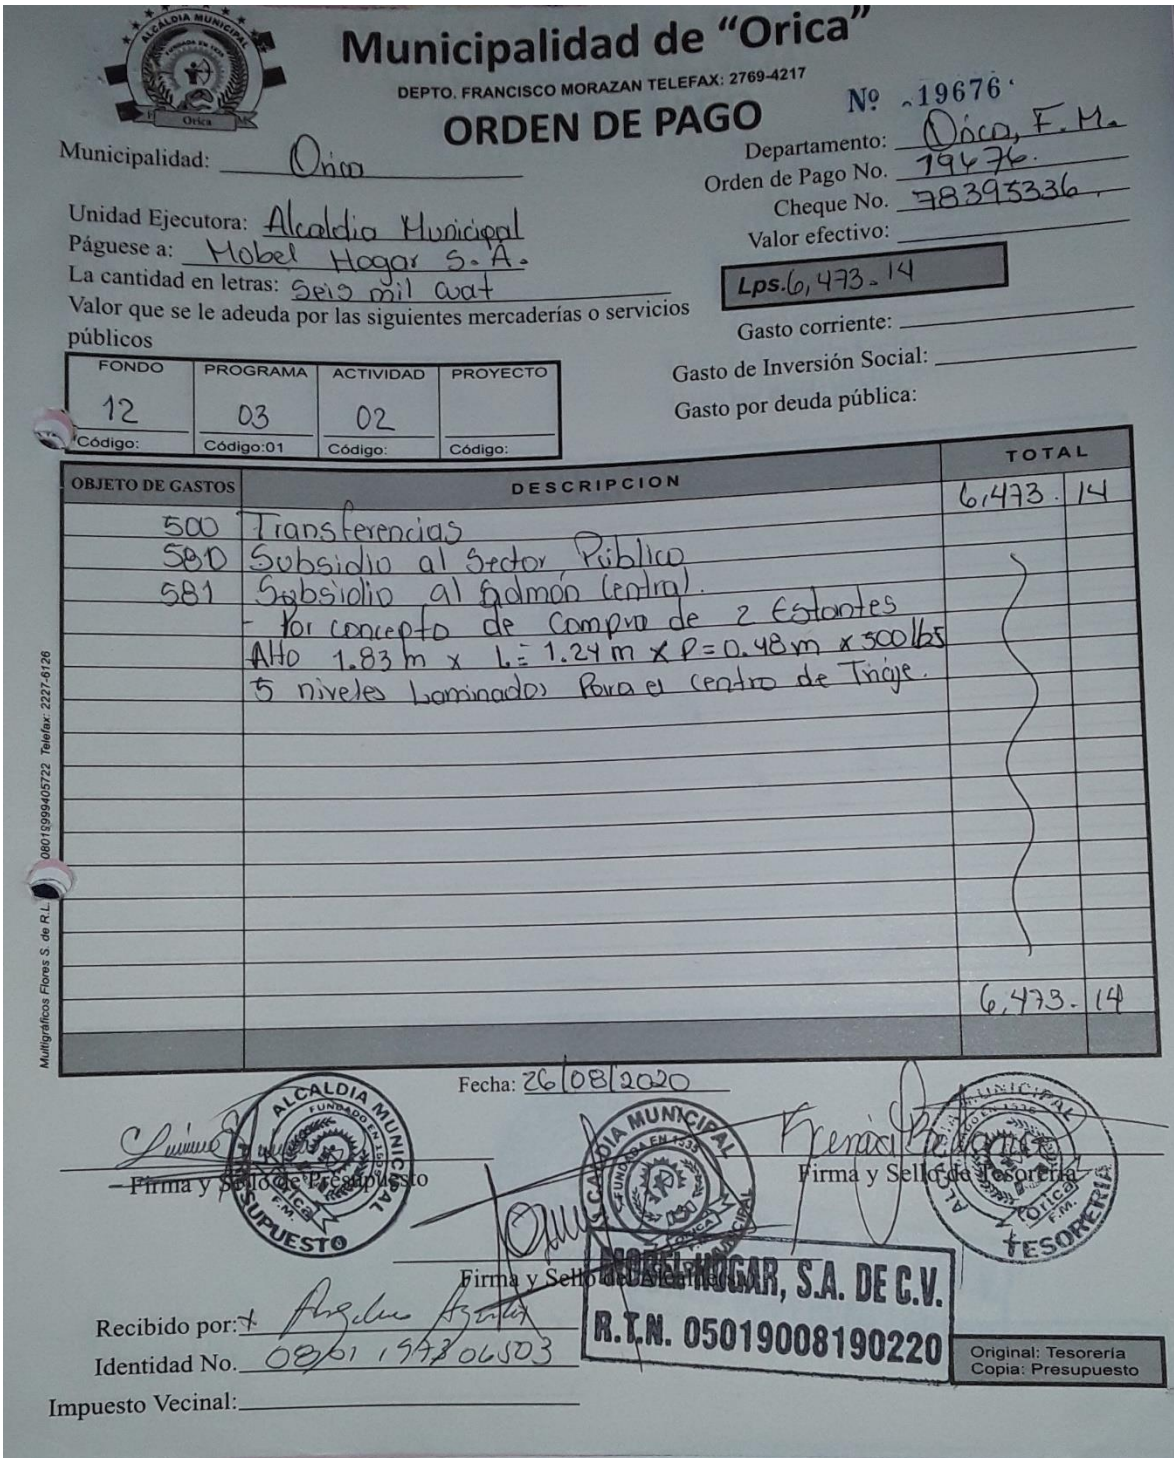 ALCALDIA MUNICIPAL
FUNDADA EN 1535
Orica
Municipalidad de “Orica”
DEPTO. FRANCISCO MORAZAN TELEFAX: 2769-4217
ORDEN DE PAGO
Nº 19676
Municipalidad: Orica
Departamento: Orica, F.M.
Orden de Pago No. 19676.
Cheque No. 78395336
Unidad Ejecutora: Alcaldia Municipal
Valor efectivo:
Páguese a: Mobel Hogar S.A.
La cantidad en letras: Seis mil cuat
Lps. 6,473.14
Valor que se le adeuda por las siguientes mercaderías o servicios
públicos
Gasto corriente:
Gasto de Inversión Social:
Gasto por deuda pública:
FONDO PROGRAMA ACTIVIDAD PROYECTO
12 03 02
Código: Código:01 Código: Código:
OBJETO DE GASTOS DESCRIPCION TOTAL
6,473.14
500 Transferencias
580 Subsidio al Sector Público
581 Subsidio al admón Central.
- Por concepto de Compra de 2 Estantes
Alto 1.83 m x L= 1.24 m x P=0.48 m x 500 lbs
5 niveles Laminados Para el Centro de Triaje.
6,473.14
Multigráficos Flores S. de R.L. 08019999405722 Telefax: 2227-6126
Fecha: 26/08/2020
ALCALDIA MUNICIPAL
FUNDADO EN 1535
Orica
F.M.
PRESUPUESTO
Firma y Sello de Presupuesto
ALCALDIA MUNICIPAL
FUNDADA EN 1535
ORICA
Firma y Sello del Alcalde
MUNICIPAL
Orica
F.M.
TESORERIA
Firma y Sello de Tesorería
MOBEL HOGAR, S.A. DE C.V.
R.T.N. 05019008190220
Recibido por:
Identidad No. 0801 1973 06503
Impuesto Vecinal:
Original: Tesorería
Copia: Presupuesto